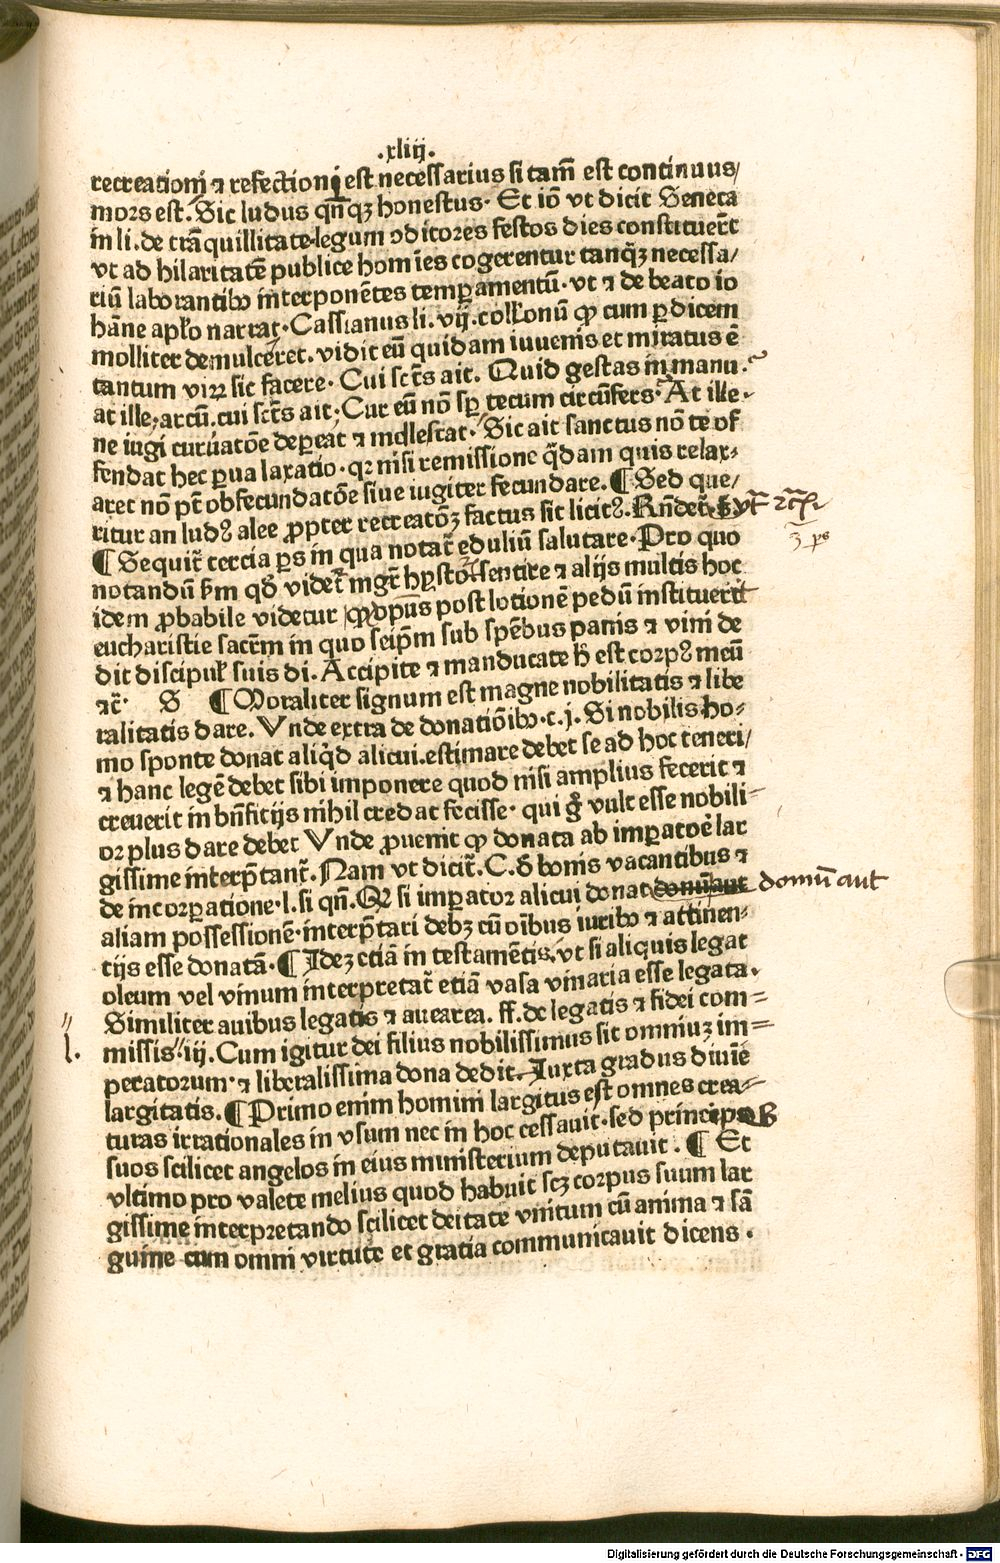 .xliij.
recreationi ⁊ refectioni est necessarius si tam̄ est continuus/
mors est. Sic ludus qn̄qꝫ honestus. Et iō vt dicit Seneca
in li. de trāquillitate legum ꝯditores festos dies constituer̄t
vt ad hilaritatē publice homīes cogerentur tanqꝫ̄ necessa/
riū laborantibꝰ interponētes temꝑamentū. vt ⁊ de beato io
hāne apl̓o narrat. Cassianus li. vij. coll̓onū ꝙ cum ꝑdicem
molliter demulceret. vidit eū quidam iuuenis et miratus ē
tantum viꝝ sic facere. Cui sct̄s ait. Quid gestas in manu.
at ille, arcū. cui sct̄s ait; Cur eū nō sꝑ tecum circūfers. At ille.
ne iugi curuatōe deꝑeat ⁊ mollescat. Sic ait sanctus nō te of
fendat hec ꝑua laxatio. qꝛ nisi remissione q̄dam quis relax-
aret nō pt̄ obfecundatōe siue iugiter fecundare. ¶ Sed que/
ritur an ludꝰ alee ꝓpter recreatōꝫ factus sit licitꝰ. Rn̄det᷑
¶ Sequit᷑ tercia ꝑs in qua notat᷑ eduliū salutare. Pro quo
3 ps
notandū ẜm qď videt᷑ mgr̄ hystor̄. sentire ⁊ alijs multis hoc
idem ꝓbabile videtur ꝙ xp̄us post lotionē pedū instituerit
eucharistie sacrm̄ in quo seip̄m sub spēbus panis ⁊ vini de
dit discipul̓ suis di. Accipite ⁊ manducate h̄ est corpꝰ meū
⁊c̄. S ¶ Moraliter signum est magne nobilitatis ⁊ libe
ralitatis dare. Vnde extra de donatiōibꝰ. c. j. Si nobilis ho-
mo sponte donat aliqͥd alicui. estimare debet se ad hoc teneri/
⁊ hanc legē debet sibi imponere quod nisi amplius fecerit ⁊
creuerit in bn̄ficijs nihil credat fecisse. qui gͦ vult esse nobili-
or plus dare debet Vnde ꝓuenit ꝙ donata ab imꝑatoē lar
gissime interp̄tant᷑. Nam vt dicit᷑. C. d̓ bonis vacantibus ⁊
de incorꝑatione. l. si qn̄. Qꝛ si imꝑator alicui donat domū aut domū aut
aliam possessionē. interp̄tari debꝫ cū oībus iuribꝰ ⁊ attinen-
tijs esse donatā. ¶ Idēꝫ etiā in testamētis. vt si aliquis legat
oleum vel vinum interpretat᷑ etiā vasa vinaria esse legata.
Similiter auibus legatis ⁊ auearea. ff. de legatis ⁊ fidei com=
l. missis. iij. Cum igitur dei filius nobilissimus sit omniuꝫ im=
peratorum. ⁊ liberalissima dona dedit. Iuxta gradus diuīe
largitatis. ¶ Primo enim homini largitus est omnes crea-
turas irrationales in vsum nec in hoc cessauit. sed principes
suos scilicet angelos in eius ministerium deputauit. ¶ Et
vltimo pro valete melius quod habuit scꝫ corpus suum lar
gissime interpretando scilicet deitate vnitum cū anima ⁊ sā
guine cum omni virtute et gratia communicauit dicens.
Digitalisierung gefördert durch die Deutsche Forschungsgemeinschaft - DFG